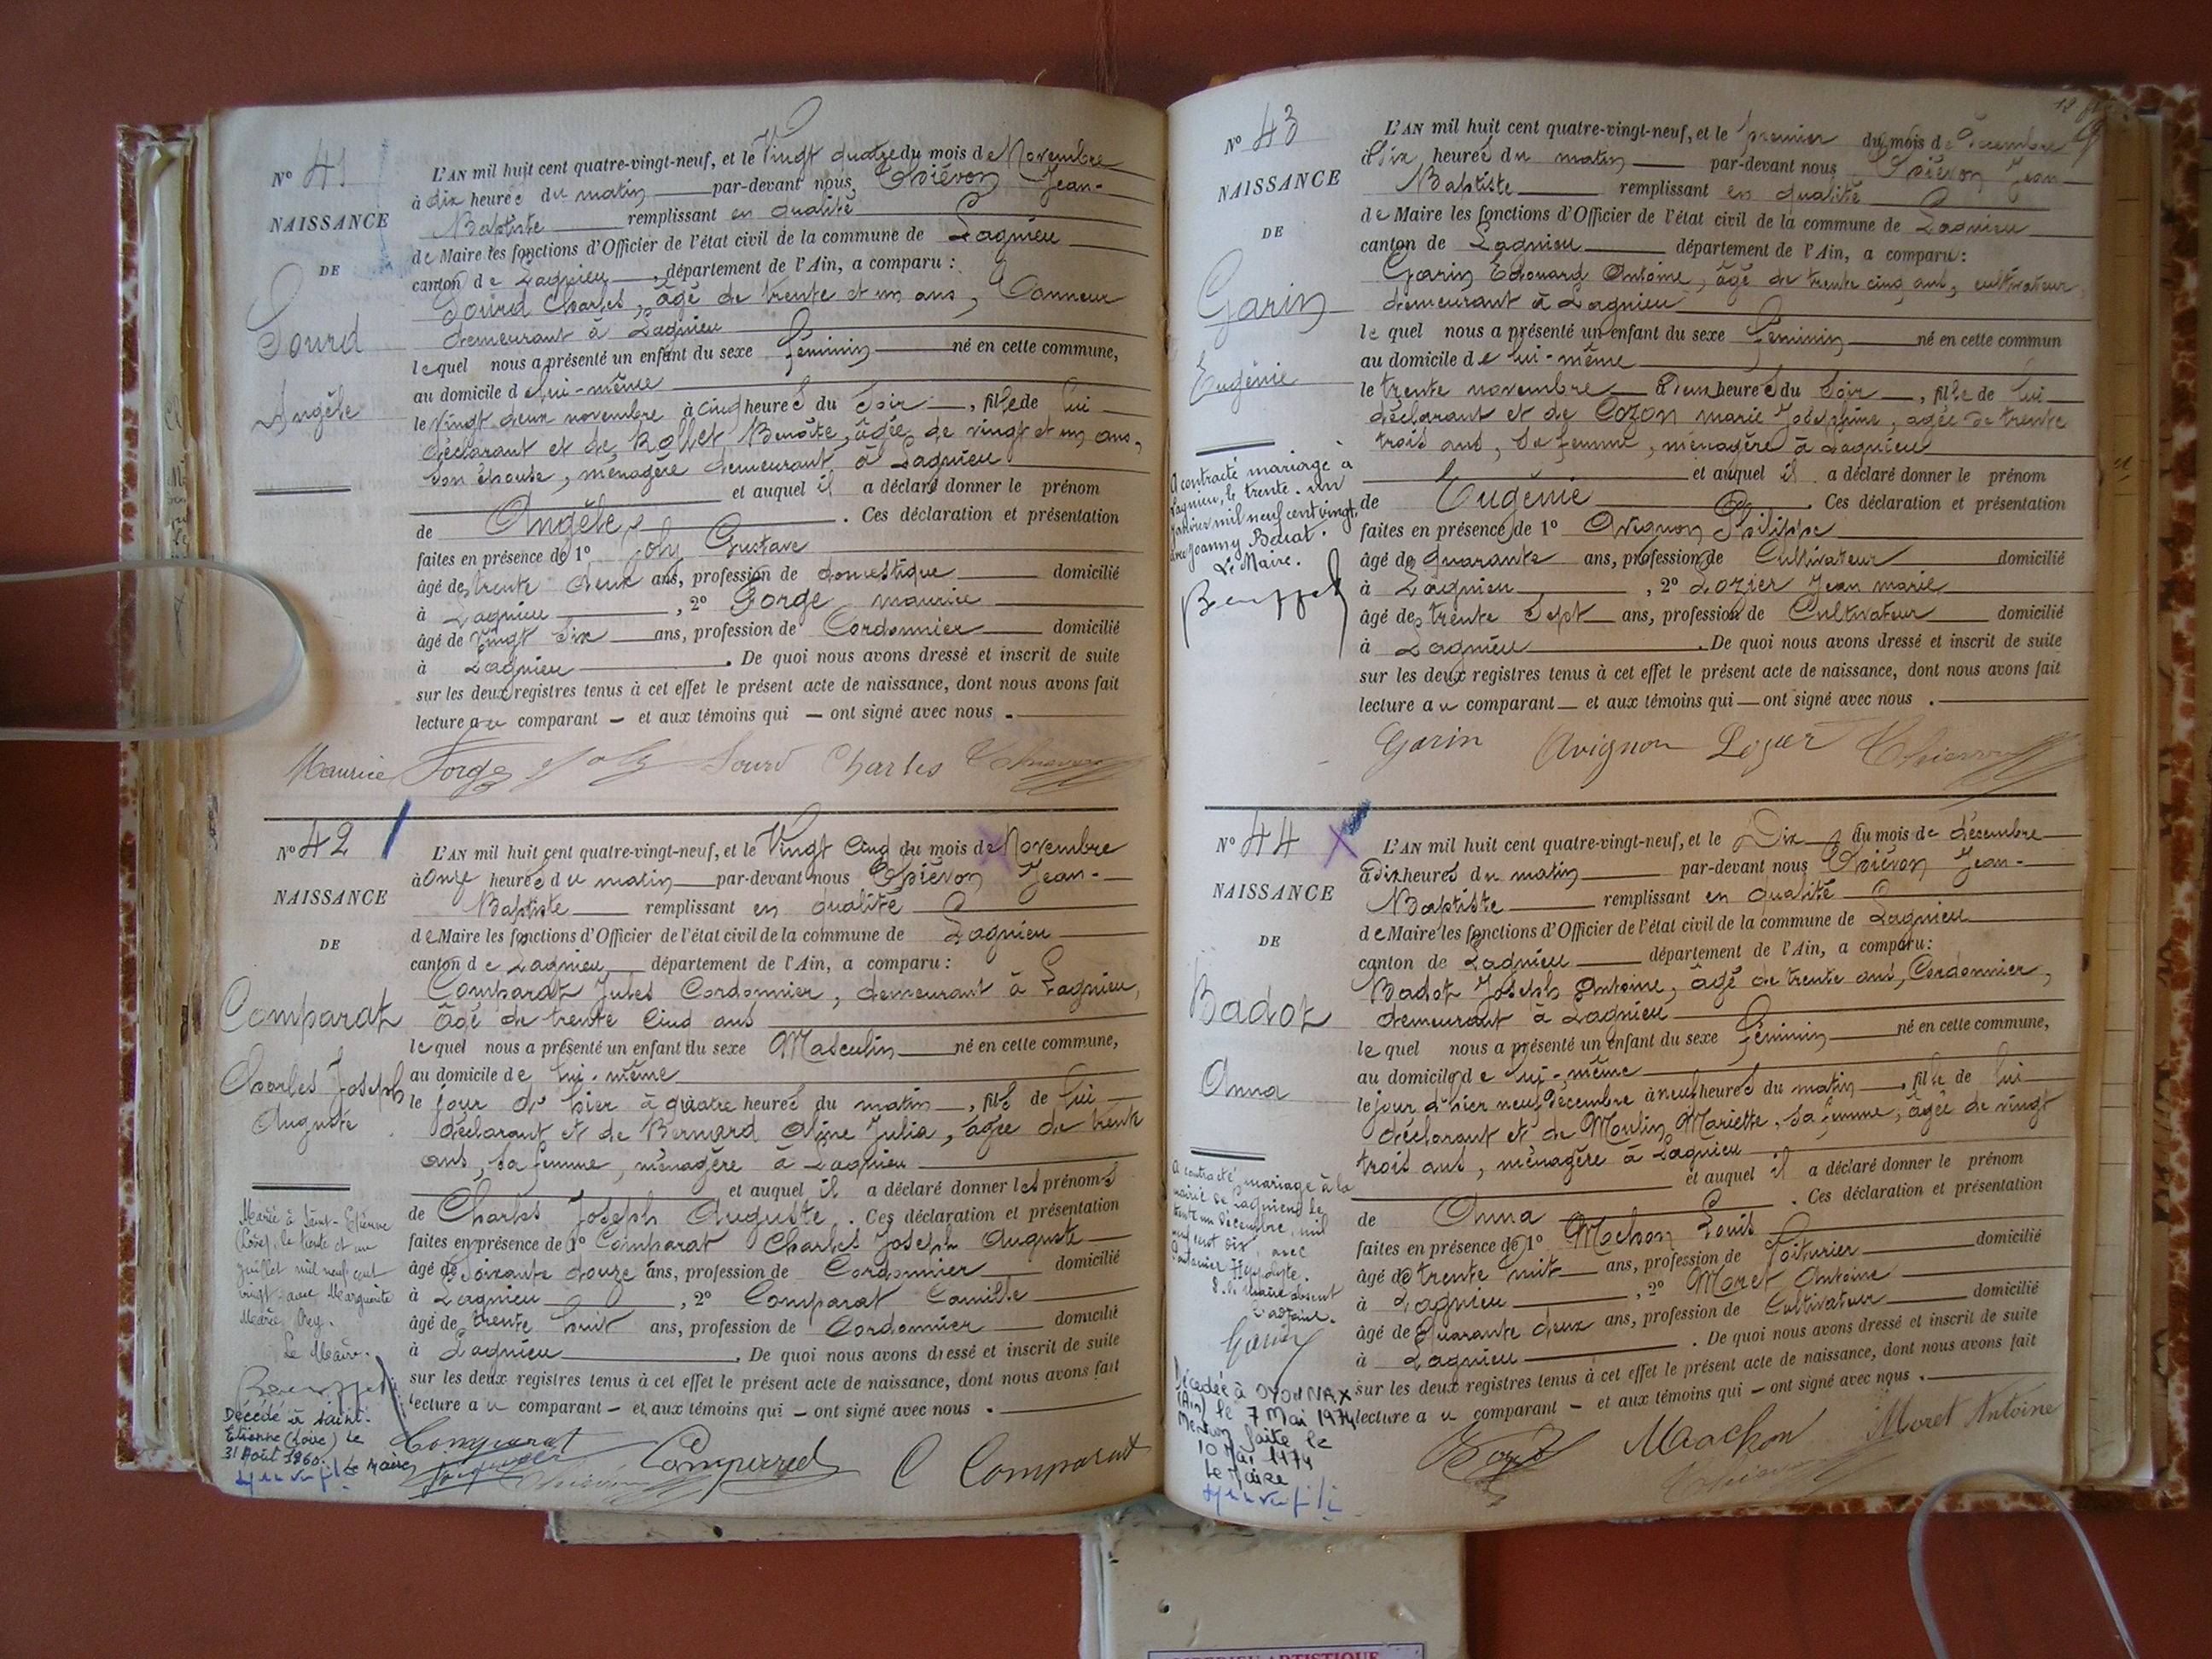 N° 41
NAISSANCE
DE
Sourd
Angèle
L'AN mil huit cent quatre-vingt-neuf, et le Vingt quatre du mois de Novembre
à dix heures du matin par-devant nous, Thiévon Jean-
Baptiste remplissant en qualité
de Maire les fonctions d'Officier de l'état civil de la commune de Lagnieu
canton de Lagnieu, département de l'Ain, a comparu :
Sourd Charles, âgé de trente et un ans, Tanneur
demeurant à Lagnieu
lequel nous a présenté un enfant du sexe féminin né en cette commune,
au domicile de lui-même
le vingt deux novembre à cinq heures du soir, fille de lui
déclarant et de Rollet Benoîte, âgée de vingt et un ans,
son épouse, ménagère demeurant à Lagnieu
et auquel il a déclaré donner le prénom
de Angèle. Ces déclaration et présentation
faites en présence de 1° Joly Gustave
âgé de trente deux ans, profession de domestique domicilié
à Lagnieu, 2° Forge maurice
âgé de vingt six ans, profession de Cordonnier domicilié
à Lagnieu. De quoi nous avons dressé et inscrit de suite
sur les deux registres tenus à cet effet le présent acte de naissance, dont nous avons fait
lecture au comparant – et aux témoins qui – ont signé avec nous.
Maurice Forge Joly Sourd Charles Thiévon
N° 42
NAISSANCE
DE
Comparat
Charles Joseph
Auguste
Marié à Saint-Etienne
(Loire), le trente et un
juillet mil neuf cent
vingt avec Marguerite
Marie Rey.
Le Maire.
Décédé à Saint-
Etienne (Loire) le
31 Août 1960. Le Maire
L'AN mil huit cent quatre-vingt-neuf, et le Vingt Cinq du mois de Novembre
à Onze heures du matin par-devant nous Thiévon Jean-
Baptiste remplissant en qualité
de Maire les fonctions d'Officier de l'état civil de la commune de Lagnieu
canton de Lagnieu département de l'Ain, a comparu :
Comparat Jules Cordonnier, demeurant à Lagnieu,
âgé de trente Cinq ans
lequel nous a présenté un enfant du sexe Masculin né en cette commune,
au domicile de lui-même
le jour d'hier à quatre heures du matin, fils de lui
déclarant et de Bernard Aline Julia, âgée de trente
ans, sa femme, ménagère à Lagnieu
et auquel il a déclaré donner les prénoms
de Charles Joseph Auguste. Ces déclaration et présentation
faites en présence de 1° Comparat Charles Joseph Auguste
âgé de Soixante douze ans, profession de Cordonnier domicilié
à Lagnieu, 2° Comparat Camille
âgé de trente huit ans, profession de Cordonnier domicilié
à Lagnieu. De quoi nous avons dressé et inscrit de suite
sur les deux registres tenus à cet effet le présent acte de naissance, dont nous avons fait
lecture au comparant – et aux témoins qui – ont signé avec nous.
Comparat Comparat C Comparat
N° 43
NAISSANCE
DE
Garin
Eugénie
A contracté mariage à
Lagnieu, le trente-un
Janvier mil neuf cent vingt,
avec Joanny Bouat.
Le Maire.
L'AN mil huit cent quatre-vingt-neuf, et le premier du mois de Décembre
à dix heures du matin par-devant nous Thiévon Jean
Baptiste remplissant en qualité
de Maire les fonctions d'Officier de l'état civil de la commune de Lagnieu
canton de Lagnieu département de l'Ain, a comparu :
Garin Edouard Antoine, âgé de trente cinq ans, cultivateur
demeurant à Lagnieu
lequel nous a présenté un enfant du sexe féminin né en cette commun
au domicile de lui-même
le trente novembre à Deux heures du Soir, fille de lui
déclarant et de Cozon marie Joséphine, agée de trente
trois ans, sa femme, ménagère à Lagnieu
et auquel il a déclaré donner le prénom
de Eugénie. Ces déclaration et présentation
faites en présence de 1° Avignon Philippe
âgé de quarante ans, profession de Cultivateur domicilié
à Lagnieu, 2° Lozier Jean marie
âgé de trente Sept ans, profession de Cultivateur domicilié
à Lagnieu. De quoi nous avons dressé et inscrit de suite
sur les deux registres tenus à cet effet le présent acte de naissance, dont nous avons fait
lecture au comparant – et aux témoins qui – ont signé avec nous.
Garin Avignon Lozier Thiévon
N° 44
NAISSANCE
DE
Badot
Anna
A contracté mariage à la
mairie de Lagnieu le
trente un décembre, mil
neuf cent dix, avec
Hippolyte.
P. le Maire absent
L'adjoint.
Décédée à OYONNAX
(Ain) le 7 Mai 1974
Mention faite le
10 Mai 1974
Le Maire
L'AN mil huit cent quatre-vingt-neuf, et le Dix du mois de décembre
à dix heures du matin par-devant nous Thiévon Jean-
Baptiste remplissant en qualité
de Maire les fonctions d'Officier de l'état civil de la commune de Lagnieu
canton de Lagnieu département de l'Ain, a comparu :
Badot Joseph Antoine, âgé de trente ans, Cordonnier,
demeurant à Lagnieu
lequel nous a présenté un enfant du sexe féminin né en cette commune,
au domicile de lui-même
le jour d'hier neuf Décembre à neuf heures du matin, fille de lui
déclarant et de Moulin Mariette, sa femme, âgée de vingt
trois ans, ménagère à Lagnieu
et auquel il a déclaré donner le prénom
de Anna. Ces déclaration et présentation
faites en présence de 1° Mochon Louis
âgé de trente huit ans, profession de Voiturier domicilié
à Lagnieu, 2° Moret Antoine
âgé de Quarante deux ans, profession de Cultivateur domicilié
à Lagnieu. De quoi nous avons dressé et inscrit de suite
sur les deux registres tenus à cet effet le présent acte de naissance, dont nous avons fait
lecture au comparant – et aux témoins qui – ont signé avec nous.
Mochon Moret Antoine